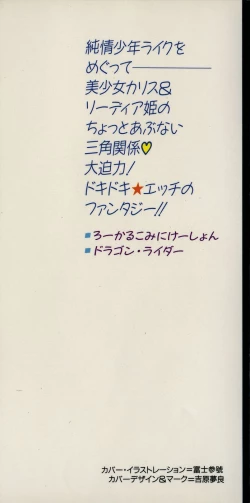 純情少年ライクを
めぐって————
美少女カリス&
リーディア姫の
ちょっとあぶない
三角関係♥
大迫力!
ドキドキ★エッチの
ファンタジー!!
■ろーかるこみにけーしょん
■ドラゴン・ライダー
カバー・イラストレーション=富士参號
カバーデザイン&マーク=吉原夢良